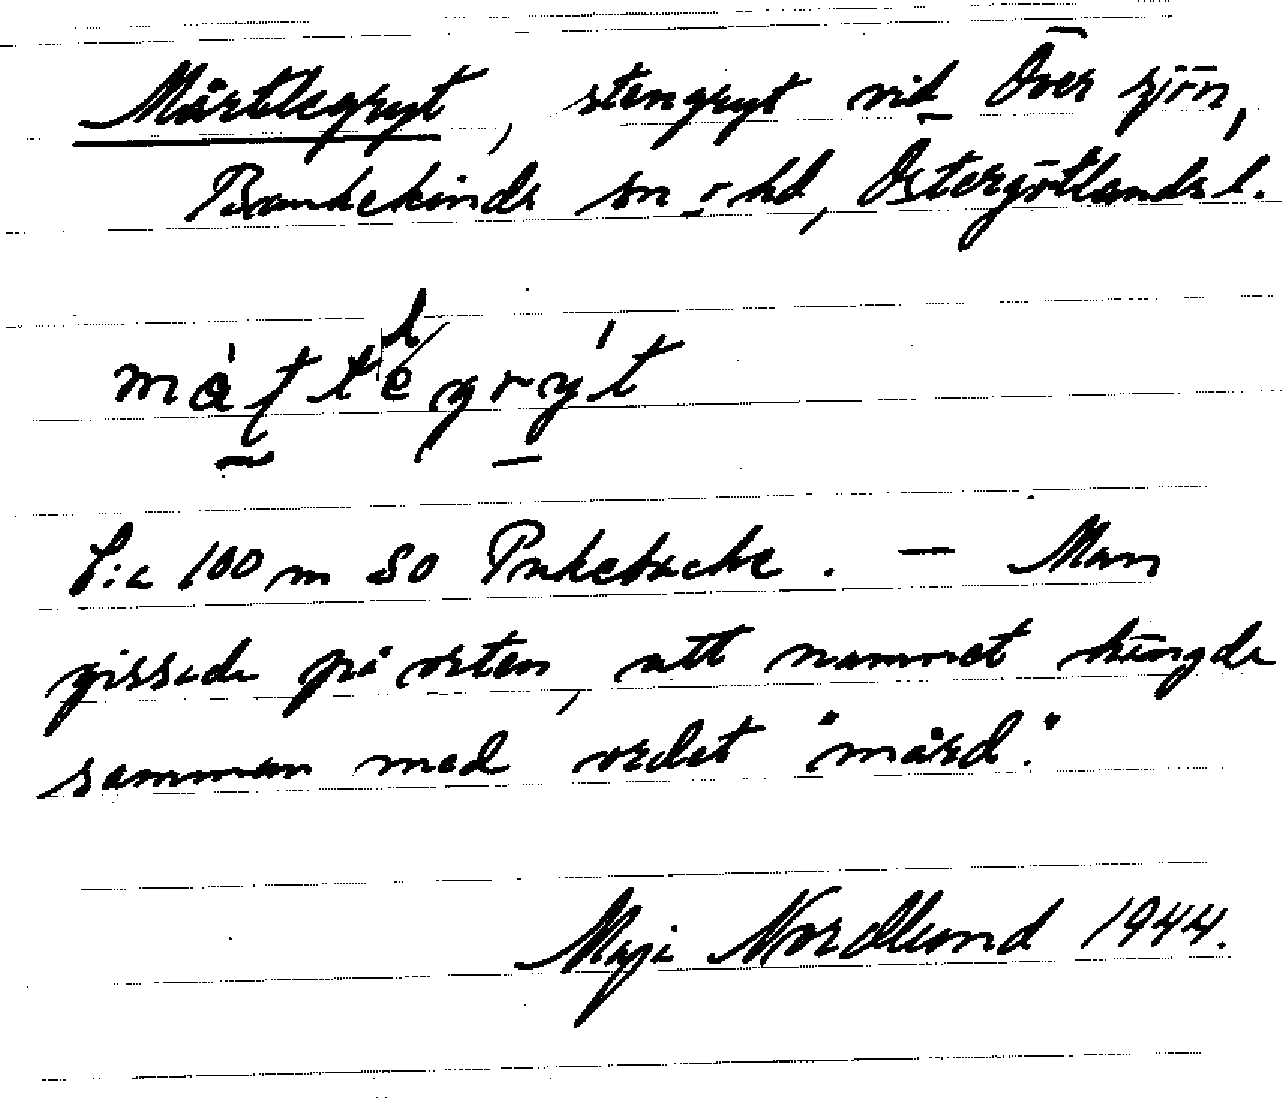 Mårtlegryt, stengryt vid Över sjön,
Bankekinds sn o hd, Östergötlands l.
C:a 100 m SO Pukebacke. — Man
gissade på orten, att namnet hängde
samman med ordet "mård".
Maji Nordlund 1944.